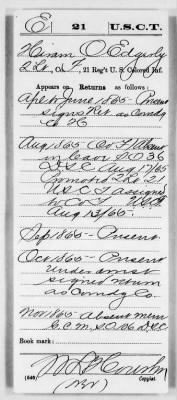 E 21 U.S.C.T.
Hiram O Edgerly
2 Lt., Co. F, 21 Reg't U. S. Colored Inf.
Appears on Returns as follows:
Apl to June 1865 - Present
signs Ret as comdg
Co
Aug 1865 Co F Absent
in S.O 36
Aug 17/65
Promoted 21
U S C T assigned
to Co F
Aug 13/65
Sep 1865 - Present
Oct 1865 - Present
under arrest
signed return
as Comdg Co.
Nov 1865 Absent mem
G.C.M. S.O. 106 D.S.C
Book mark:
(546) Copyist.